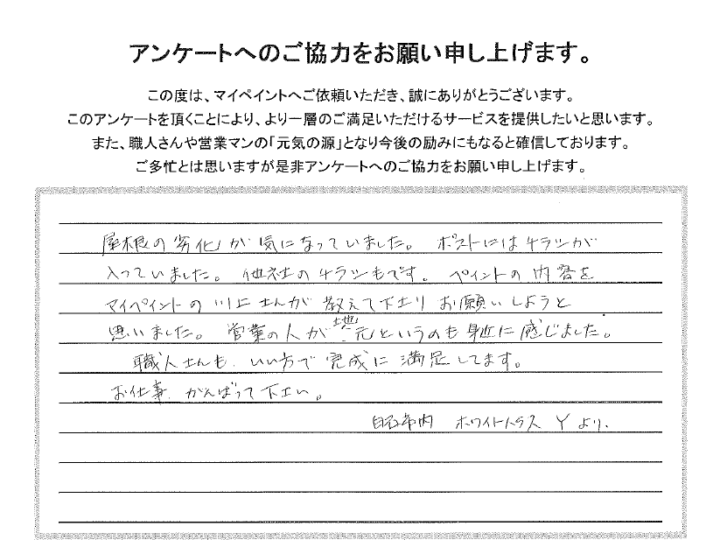 アンケートへのご協力をお願い申し上げます。
この度は、マイペイントへご依頼いただき、誠にありがとうございます。
このアンケートを頂くことにより、より一層のご満足いただけるサービスを提供したいと思います。
また、職人さんや営業マンの「元気の源」となり今後の励みにもなると確信しております。
ご多忙とは思いますが是非アンケートへのご協力をお願い申し上げます。
屋根の劣化が気になっていました。 ポストにはチラシが
入っていました。 他社のチラシもです。 ペイントの内容を
マイペイントの川上さんが 教えて下さり お願いしようと
思いました。 営業の人が地元というのも身近に感じました。
職人さんも いい方で 完成に 満足してます。
お仕事 がんばって下さい。
白石市内 ホワイトハウス Yより.